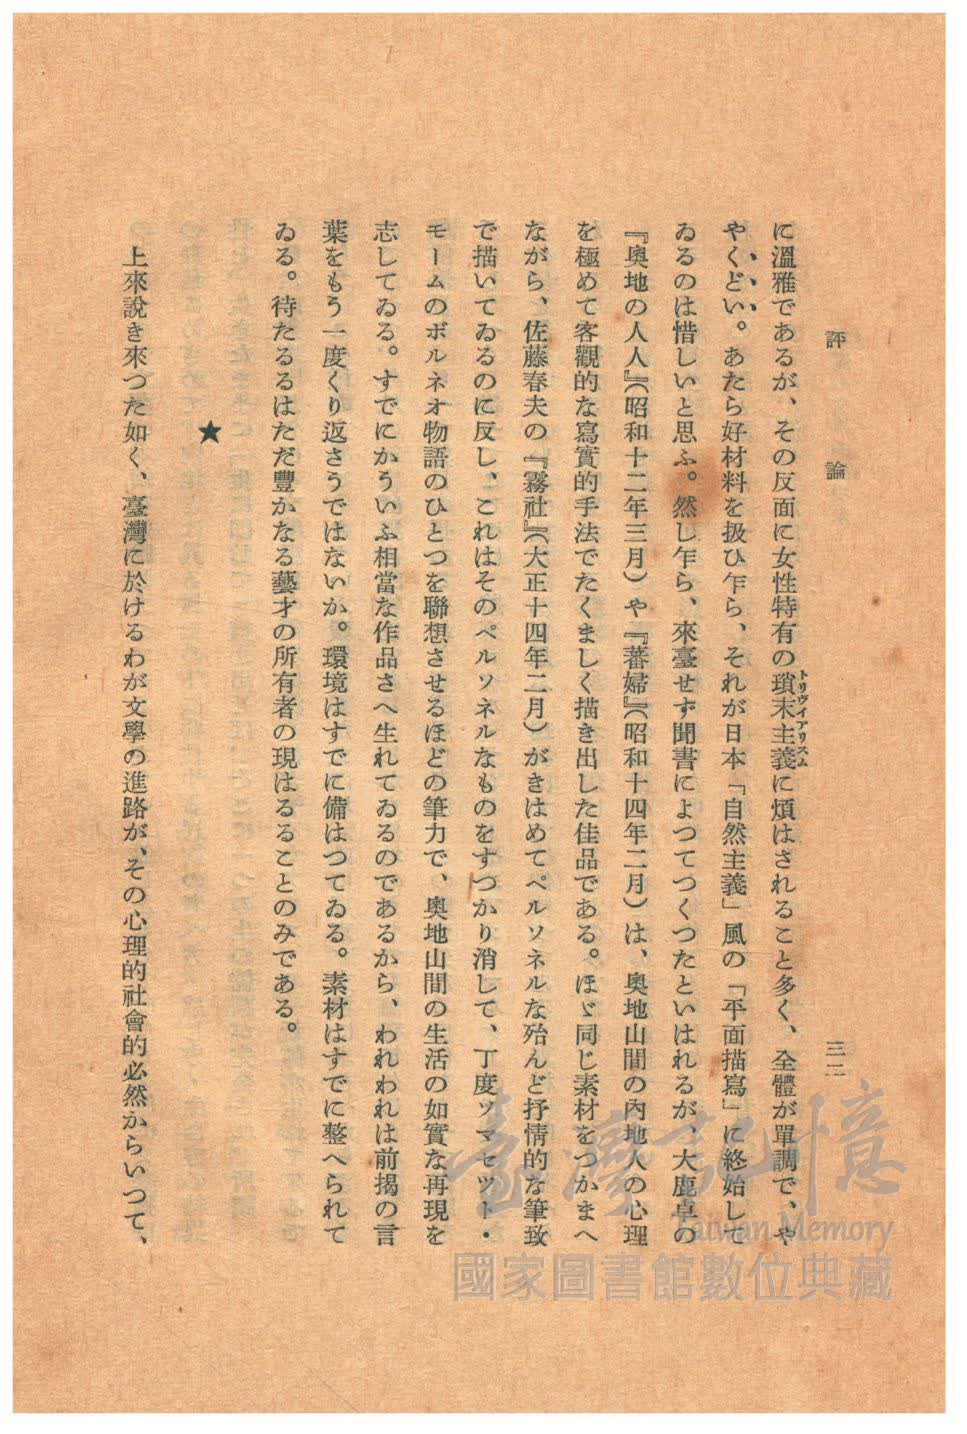 評論
三二
に溫雅であるが、その反面に女性特有の瑣末主義に煩はされること多く、全體が單調で、や
トリヴィアリスム
やくどい。あたら好材料を扱ひ乍ら、それが日本「自然主義」風の「平面描寫」に終始して
ゐるのは惜しいと思ふ。然し乍ら、來臺せず聞書によつてつくつたといはれるが、大鹿卓の
『奧地の人人』(昭和十二年三月)や『蕃婦』(昭和十四年二月)は、奧地山間の內地人の心理
を極めて客觀的な寫實的手法でたくましく描き出した佳品である。ほゞ同じ素材をつかまへ
ながら、佐藤春夫の『霧社』(大正十四年二月)がきはめてペルソネルな殆んど抒情的な筆致
で描いてゐるのに反し、これはそのペルソネルなものをすつかり消して、丁度ソマセツト・
モームのボルネオ物語のひとつを聯想させるほどの筆力で、奧地山間の生活の如實な再現を
志してゐる。すでにかういふ相當な作品さへ生れてゐるのであるから、われわれは前揭の言
葉をもう一度くり返さうではないか。環境はすでに備はつてゐる。素材はすでに整へられて
ゐる。待たるるはただ豐かなる藝才の所有者の現はるることのみである。
★
上來說き來つた如く、臺灣に於けるわが文學の進路が、その心理的社會的必然からいつて、
臺灣記憶
Taiwan Memory
國家圖書館數位典藏